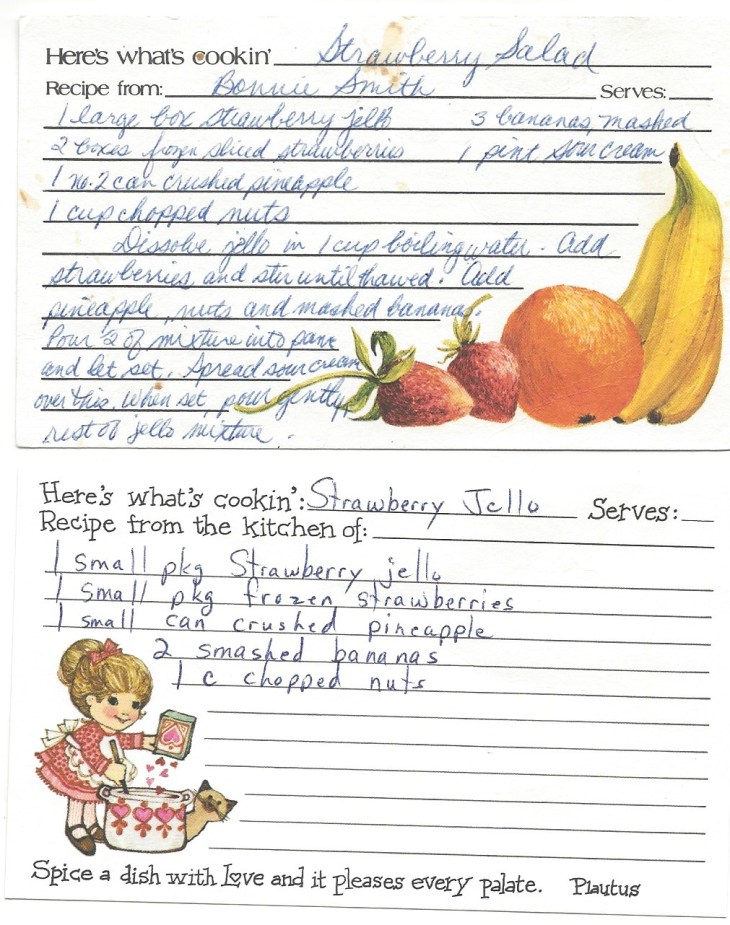 Here's what's cookin' Strawberry Salad
Recipe from: Bonnie Smith Serves:
1 large box strawberry jello 3 bananas, mashed
2 boxes frozen sliced strawberries 1 pint sour cream
1 no. 2 can crushed pineapple
1 cup chopped nuts
Dissolve jello in 1 cup boiling water. Add
strawberries and stir until thawed. Add
pineapple, nuts and mashed bananas.
Pour ½ of mixture into pan
and let set. Spread sour cream
over this. When set, pour gently
rest of jello mixture.
Here's what's cookin': Strawberry Jello Serves:
Recipe from the kitchen of:
1 small pkg Strawberry jello
1 small pkg frozen strawberries
1 small can crushed pineapple
2 smashed bananas
1 c chopped nuts
Spice a dish with Love and it pleases every palate. Plautus